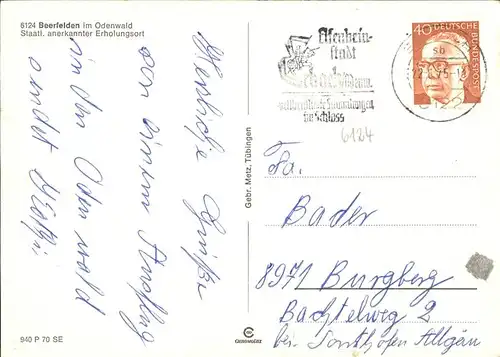 6124 Beerfelden im Odenwald
Staatl. anerkannter Erholungsort
Herzliche Grüße
von einem Ausflug
in den Odenwald
sendet
940 P 70 SE
Gebr. Metz, Tübingen
Elfenbein-
stadt
Sammlungen
im Schloss
6124
40 DEUTSCHE BUNDESPOST
sb
Fa.
Bader
8971 Burgberg
Bachtelweg 2
bei Sonthofen Allgäu